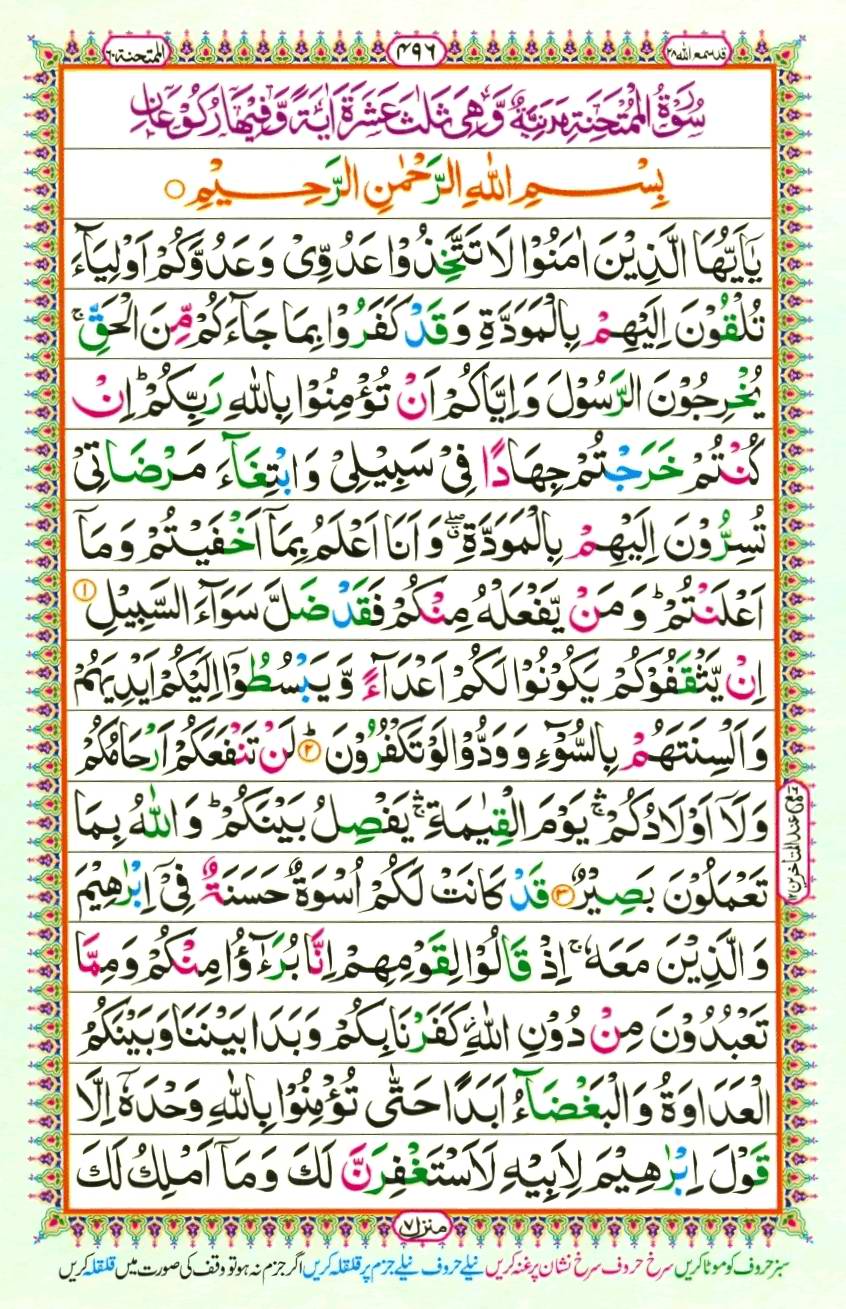 قد سمع الله ٢٨
٤٩٦
الممتحنة ٦٠
سُوْرَةُ الْمُمْتَحِنَةِ مَدَنِيَّةٌ وَّهِىَ ثَلٰثَ عَشَرَةَ اٰيَةً وَّفِيْهَا رُكُوْعَانِ
بِسْمِ اللهِ الرَّحْمٰنِ الرَّحِيْمِ ○
يٰۤاَيُّهَا الَّذِيْنَ اٰمَنُوْا لَا تَتَّخِذُوْا عَدُوِّىْ وَعَدُوَّكُمْ اَوْلِيَآءَ
تُلْقُوْنَ اِلَيْهِمْ بِالْمَوَدَّةِ وَقَدْ كَفَرُوْا بِمَا جَآءَكُمْ مِّنَ الْحَقِّ ۚ
يُخْرِجُوْنَ الرَّسُوْلَ وَاِيَّاكُمْ اَنْ تُؤْمِنُوْا بِاللهِ رَبِّكُمْ ؕ اِنْ
كُنْتُمْ خَرَجْتُمْ جِهَادًا فِىْ سَبِيْلِىْ وَابْتِغَآءَ مَرْضَاتِىْ
تُسِرُّوْنَ اِلَيْهِمْ بِالْمَوَدَّةِ ۖ وَاَنَا اَعْلَمُ بِمَاۤ اَخْفَيْتُمْ وَمَاۤ
اَعْلَنْتُمْ ؕ وَمَنْ يَّفْعَلْهُ مِنْكُمْ فَقَدْ ضَلَّ سَوَآءَ السَّبِيْلِ ۱
اِنْ يَّثْقَفُوْكُمْ يَكُوْنُوْا لَكُمْ اَعْدَآءً وَّيَبْسُطُوْۤا اِلَيْكُمْ اَيْدِيَهُمْ
وَاَلْسِنَتَهُمْ بِالسُّوْٓءِ وَوَدُّوْا لَوْ تَكْفُرُوْنَ ؕ ۲ لَنْ تَنْفَعَكُمْ اَرْحَامُكُمْ
وَلَاۤ اَوْلَادُكُمْ ۛۚ يَوْمَ الْقِيٰمَةِ ۛۚ يَفْصِلُ بَيْنَكُمْ ؕ وَاللهُ بِمَا
تَعْمَلُوْنَ بَصِيْرٌ ۳ قَدْ كَانَتْ لَكُمْ اُسْوَةٌ حَسَنَةٌ فِىْۤ اِبْرٰهِيْمَ
وَالَّذِيْنَ مَعَهٗ ۚ اِذْ قَالُوْا لِقَوْمِهِمْ اِنَّا بُرَءٰٓؤُا مِنْكُمْ وَمِمَّا
تَعْبُدُوْنَ مِنْ دُوْنِ اللهِ ز كَفَرْنَا بِكُمْ وَبَدَا بَيْنَنَا وَبَيْنَكُمُ
الْعَدَاوَةُ وَالْبَغْضَآءُ اَبَدًا حَتّٰى تُؤْمِنُوْا بِاللهِ وَحْدَهٗۤ اِلَّا
قَوْلَ اِبْرٰهِيْمَ لِاَبِيْهِ لَاَسْتَغْفِرَنَّ لَكَ وَمَاۤ اَمْلِكُ لَكَ
عند المتأخرين
منزل ٧
سبز حروف کو موٹا کریں سرخ حروف سرخ نشان پر غنہ کریں نیلے حروف نیلے جزم پر قلقلہ کریں اگر جزم نہ ہو تو وقف کی صورت میں قلقلہ کریں